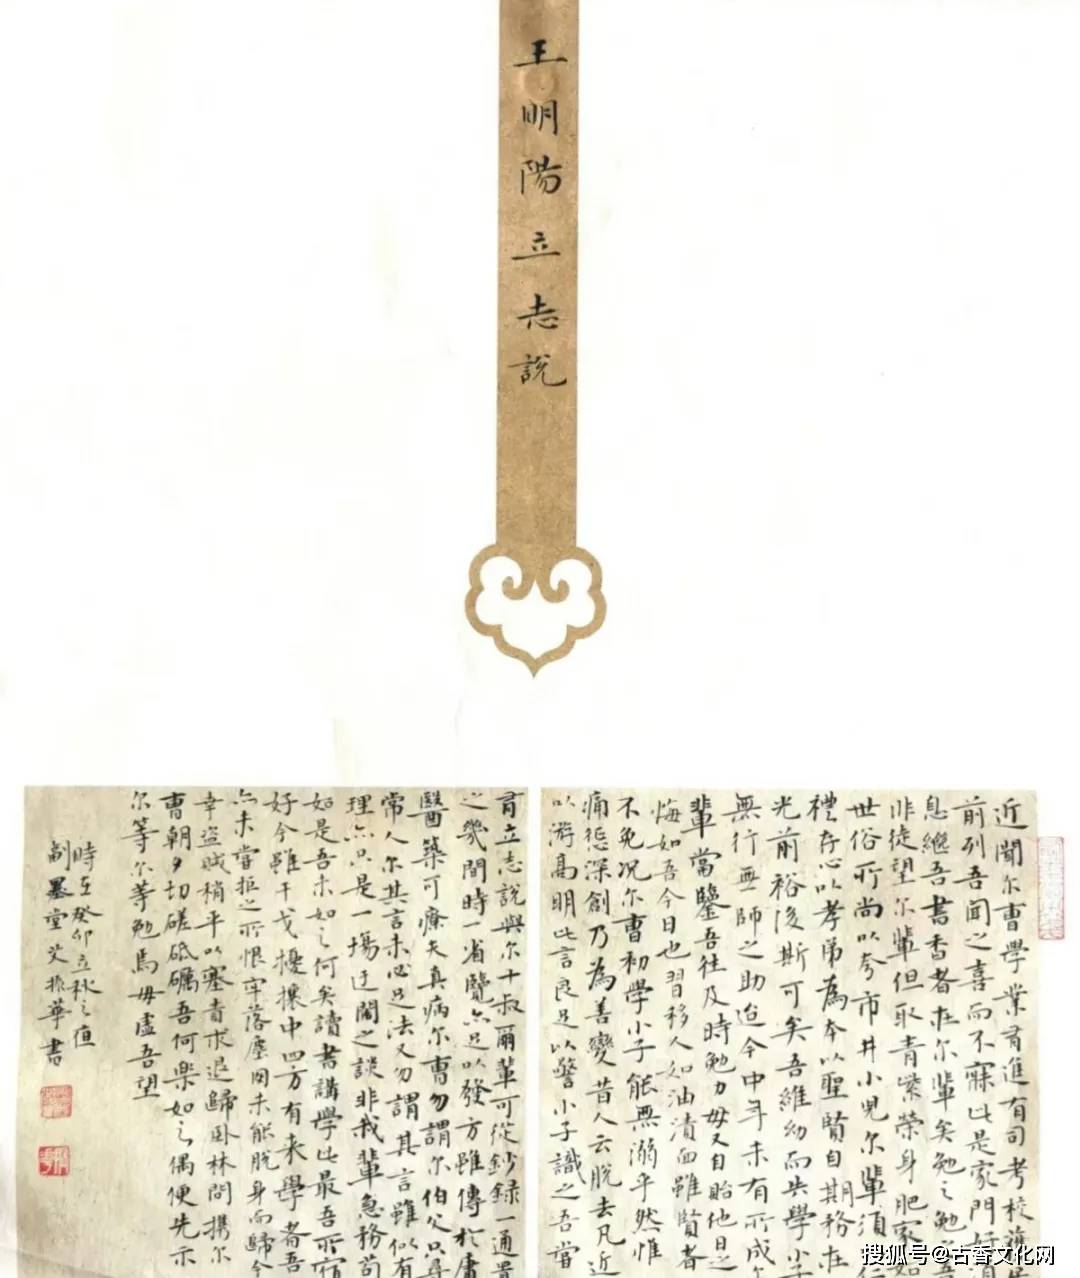 王明陽立志說
近聞尔曹學業有進有司考校獲
前列吾聞之喜而不寐此是家門好消
息繼吾書香者在尔輩矣勉之勉之吾
非徒望尔輩但取青紫榮身肥家如
世俗所尚以夸市井小兒尔輩須
禮存心以孝弟為本以聖賢自期務在
光前裕後斯可矣吾維幼而失學小子
無行無師之助迨今中年未有所成
輩當鑒吾往及時勉力毋又自貽他日之
悔如吾今日也習移人如油漬面雖賢者
不免況尔曹初學小子能無溺乎然惟
痛懲深創乃為善變昔人云脫去凡近
以游高明此言良足以警小子識之吾當
有立志說與尔十叔爾輩可從鈔錄一通置
之幾間時一省覽亦足以發方雖傳於庸
醫藥可療夫真病尔曹勿謂尔伯父只尋
常人尔其言未必足法又勿謂其言雖似有
理亦只是一場迂闊之談非我輩急務苟
如是吾末如之何矣讀書講學此最吾所宿
好今雖干戈擾攘中四方有来學者吾
亦未嘗拒之所恨牢落塵网未能脫身而歸今
幸盜賊稍平以塞責求退歸臥林間攜尔
曹朝夕切磋砥礪吾何樂如之偶便先示
尔等尔等勉焉毋虛吾望
時在癸卯立秋之值
墨堂艾振華書
搜狐号@古香文化网